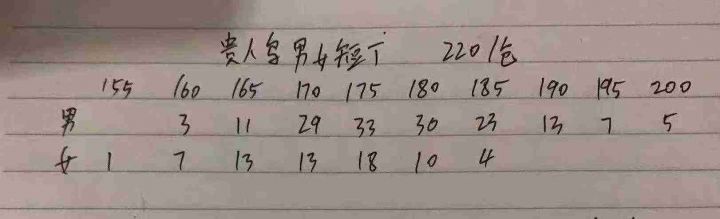 贵人鸟男女短丁 220/包
155 160 165 170 175 180 185 190 195 200
男 3 11 29 33 30 23 13 7 5
女 1 7 13 13 18 10 4